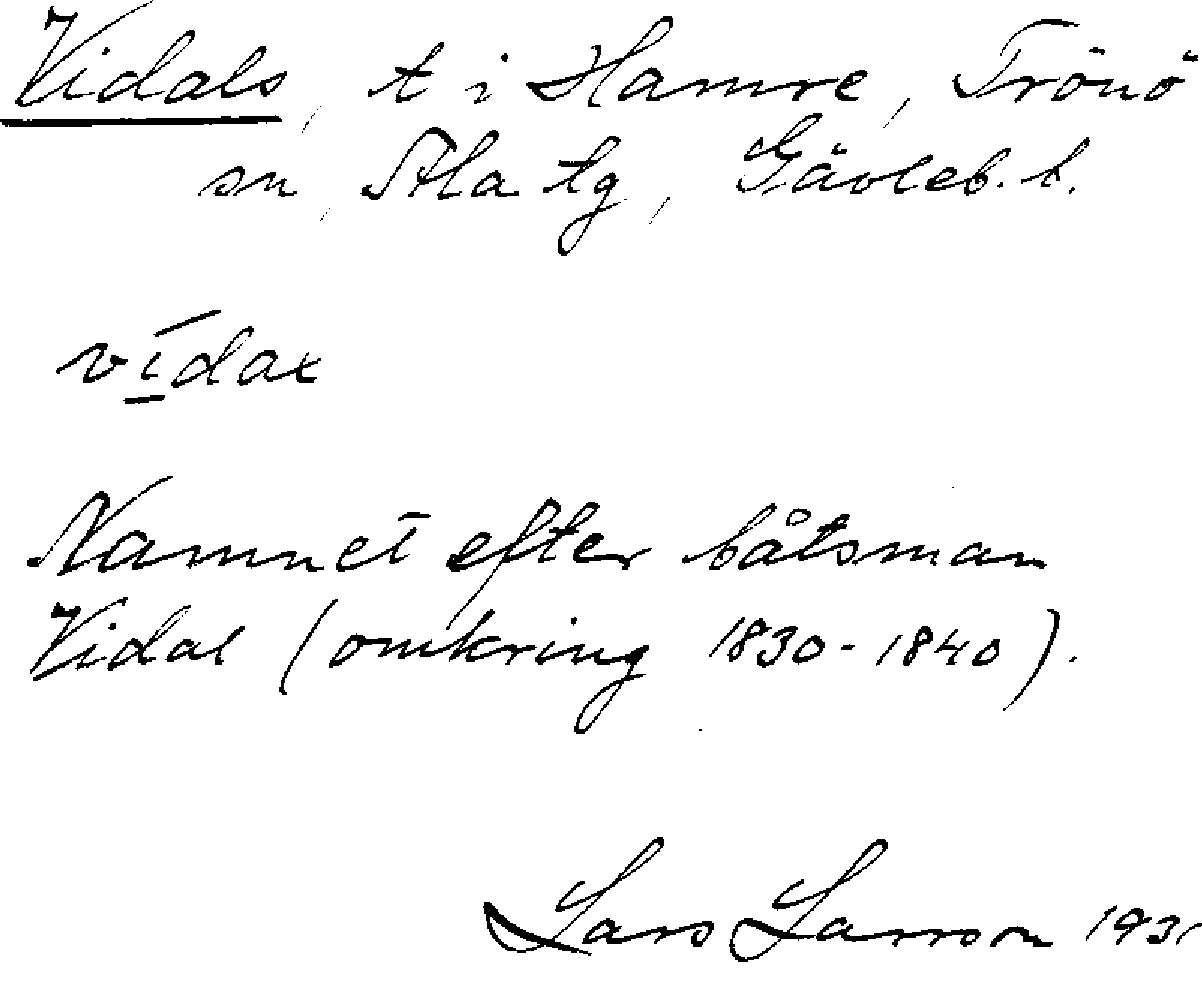 Vidals, t i Hamre, Trönö
sn, Ala tg, Gävleb. l.
vídax
Namnet efter båtsman
Vidal (omkring 1830-1840).
Lars Larsson 193